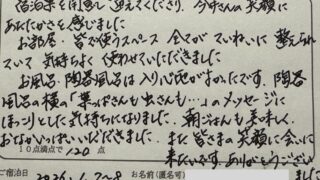 宿泊業を開き、迎えてくださり、今井さんの笑顔に
あたたかさを感じました
お部屋・皆で使うスペース 全てがていねいに整えられ
ていて 気持ちよく使わせていただきました
お風呂、陶器風呂は入り心地がよかったです。陶器
風呂の横の「葉っぱさんも虫さんも…」のメッセージに
ほっこりとした気持ちになりました。朝ごはんも美味しく、
おなかいっぱいいただきました。また皆さまの笑顔に会いに
10点満点で 120 点 来たいです。ありがとうござい
ました
ご宿泊日 お名前(匿名可)